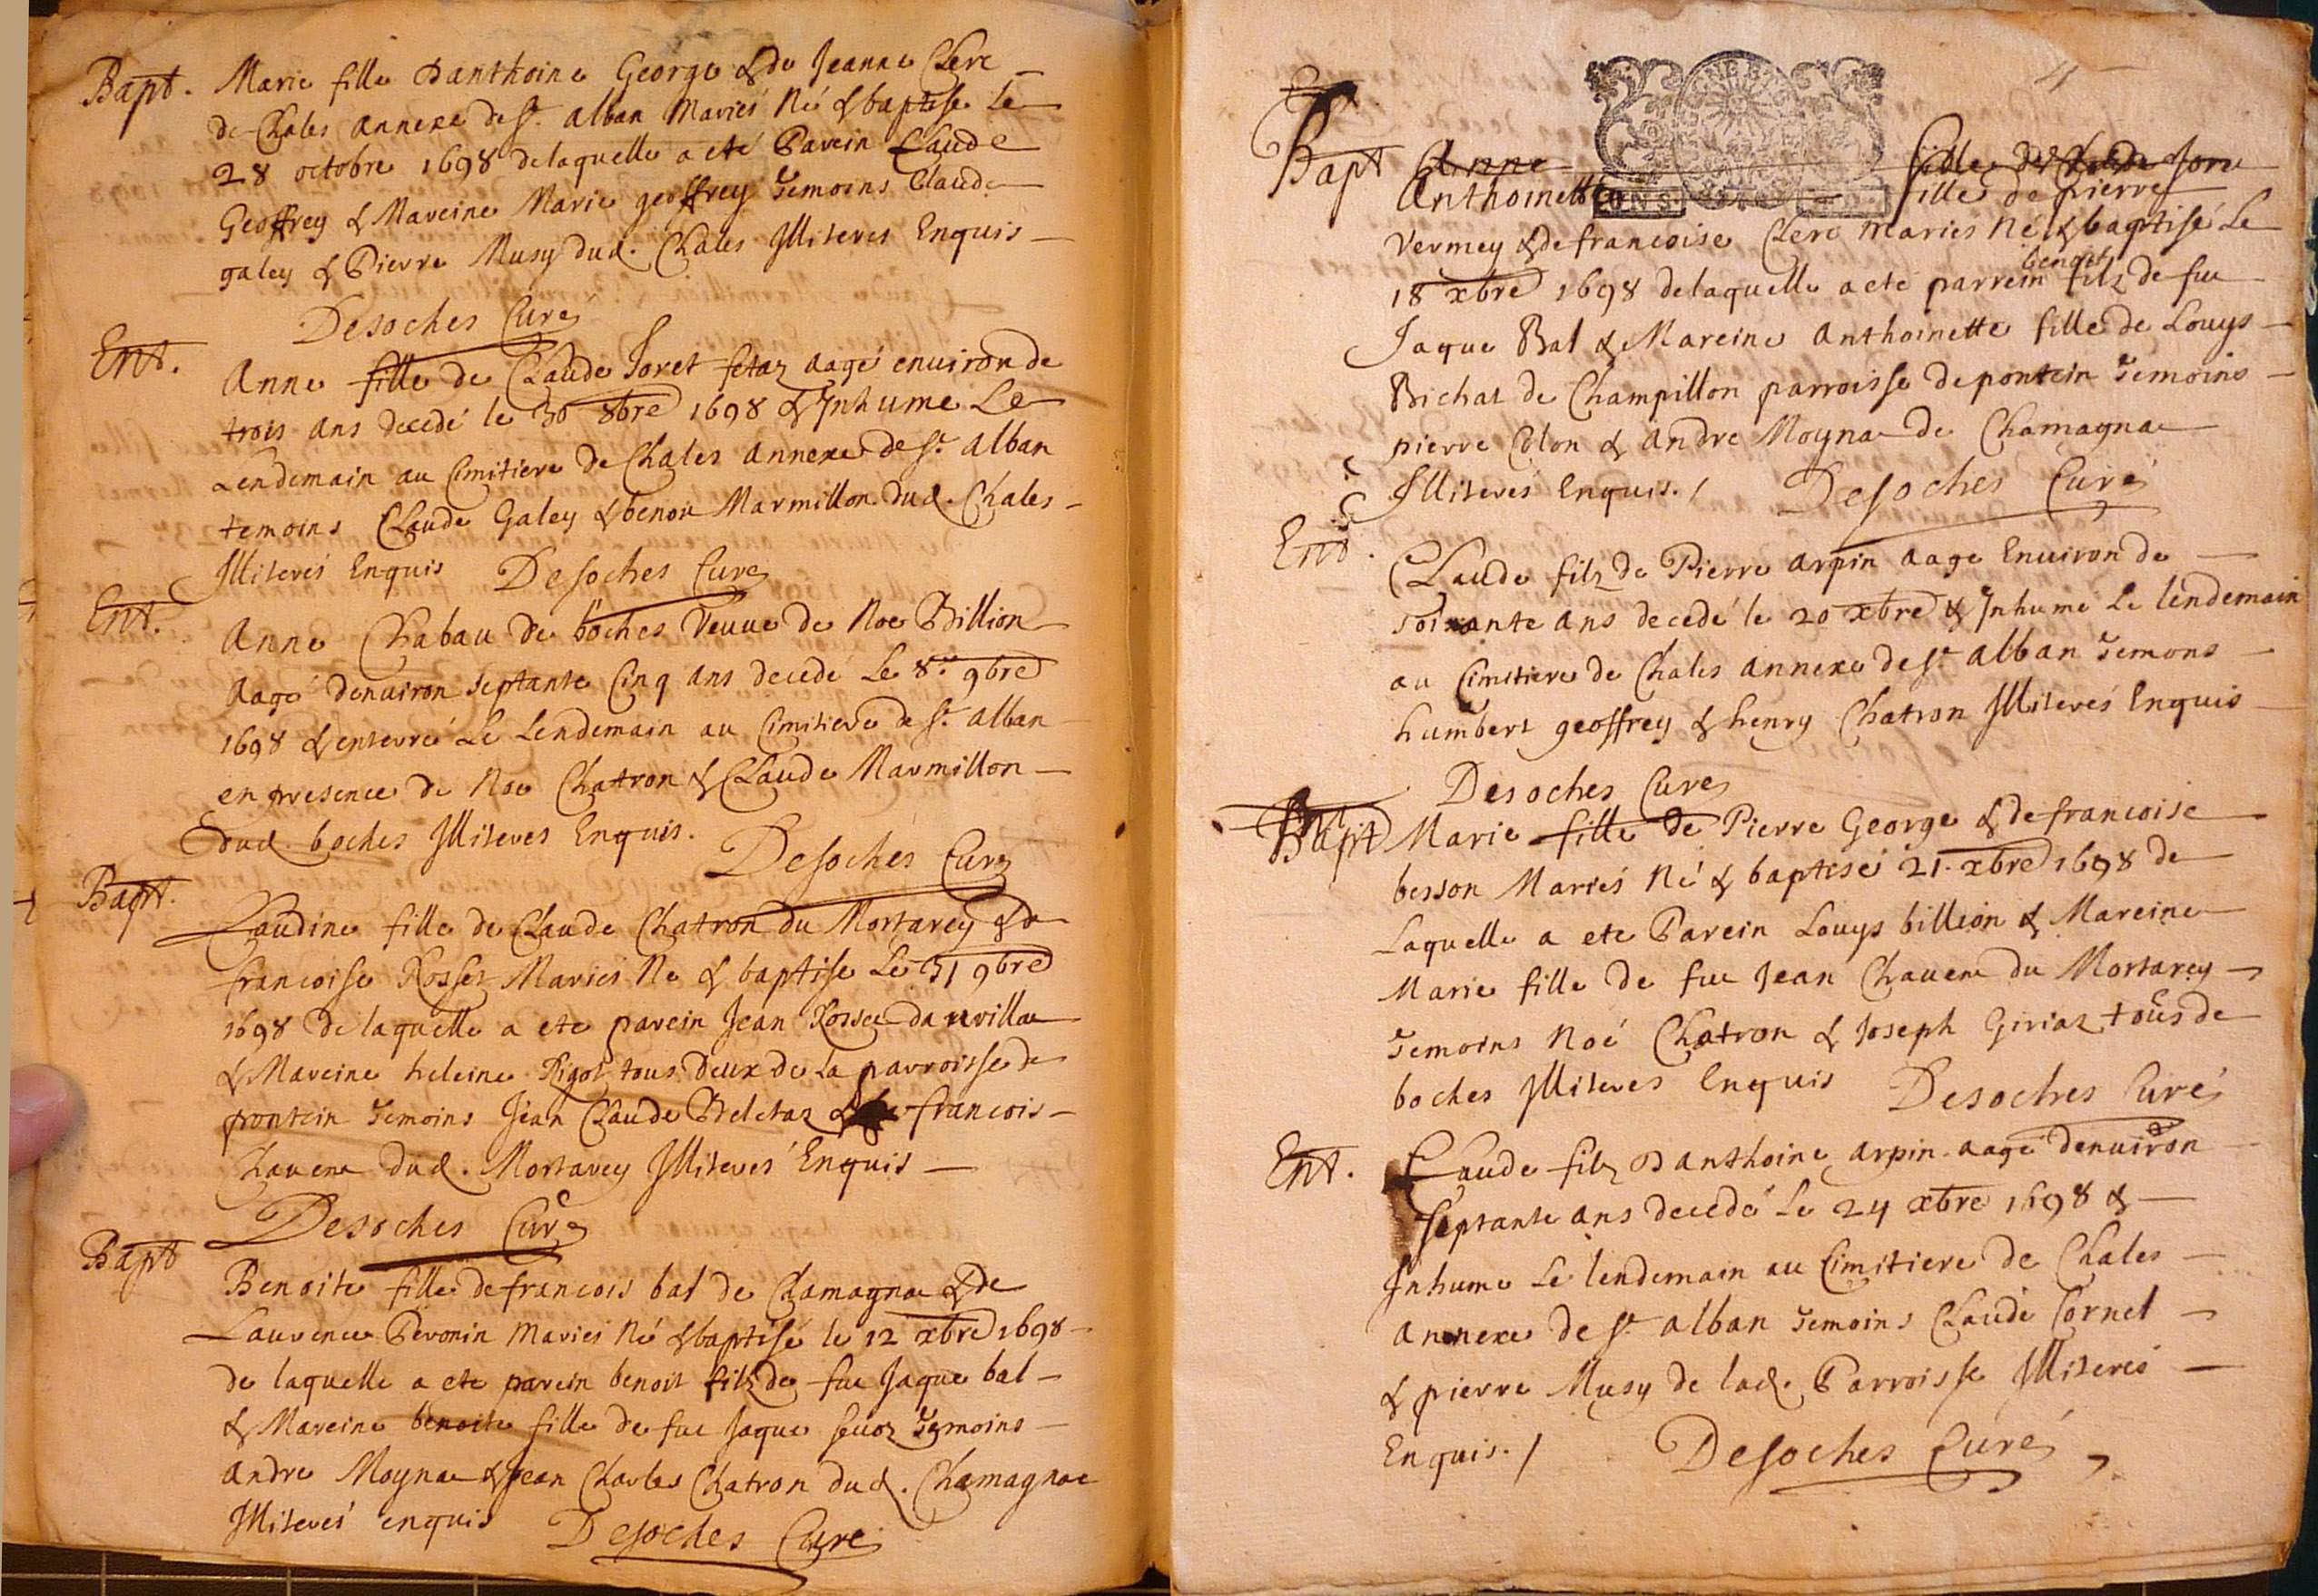 Bapt. Marie fille Danthoine George & de Jeanne Clerc
de Chales annexe de st. alban Mariés Né & baptisé Le
28 octobre 1698 de laquelle a eté Parein Claude
Geoffrey & Mareine Marie geoffrey Temoins Claude
galey & Pierre Musy dud. Chales Illiterés Enquis
Desoches Curé
Ent. Anne fille de Claude Joret fetaz aagé enuiron de
trois ans decedé le 30 8bre 1698 & Inhume Le
Lendemain au Cimitiere de Chales annexe de st. alban
temoins Claude Galey & benoit Marmillon dud. Chales
Illiterés Enquis Desoches Curé
Ent. Anne Chabau de boches Veuue de Noe Billion
aagé denuiron septante Cinq ans decedé Le 8e 9bre
1698 & enterré Le Lendemain au Cimitiere de st. alban
en presence de Noe Chatron & Claude Marmillon
dud. boches Illiterés Enquis. Desoches Curé
Bapt. Claudine fille de Claude Chatron du Mortarey & de
francoise Rosset Mariés Né & baptise Le 31 9bre
1698 de laquelle a ete parein Jean Rosset
& Mareine heleine Rigot tous deux de La parroisse de
pontein Temoins Jean Claude Beletaz & francois
Chauene dud. Mortarey Illiterés Enquis
Desoches Curé
Bapt Benoite fille de francois bal de Chamagnae & de
Laurence Peronin Mariés Né & baptisé le 12 xbre 1698
de laquelle a ete parein benoit filz de fue Jaque bal
& Mareine benoite fille de fue Jaque Temoins
andre Moynae & Jean Charles Chatron dud. Chamagnae
Illiterés enquis Desoches Curé
4
Bapt Anne fille de Claude Jore
Anthoinette fille de pierre
Vermey & de francoise Clerc Mariés Né & baptisé Le
benoit
18 xbre 1698 de laquelle a eté parrein filz de fue
Jaque Bal & Mareine Anthoinette fille de Louys
Bichat de Champillon parroisse de pontein Temoins
pierre Colon & andre Moynae de Chamagnae
Illiterés Enquis. / Desoches Curé
Ent. Claude filz de Pierre arpin aage Enuiron de
soixante ans decedé le 20 xbre & Inhume Le lendemain
au Cimitiere de Chales annexe de st. alban Temons
humbert geoffrey & henry Chatron Illiterés Enquis
Desoches Curé
Bapt Marie fille de Pierre George & de francoise
besson Mariés Né & baptisé 21. xbre 1698 de
Laquelle a ete Parein Louys billion & Mareine
Marie fille de fue Jean Chauene du Mortarey
Temoins Noé Chatron & Joseph Giriaz tous de
boches Illiterés Enquis Desoches Curé
Ent. Claude filz Danthoine arpin aagé denuiron
septante ans decedé Le 24 xbre 1698 &
Inhume Le lendemain au Cimitiere de Chales
annexe de st. alban Temoins Claude Cornet
& pierre Musy de lad. Parroisse Illiterés
Enquis. / Desoches Curé